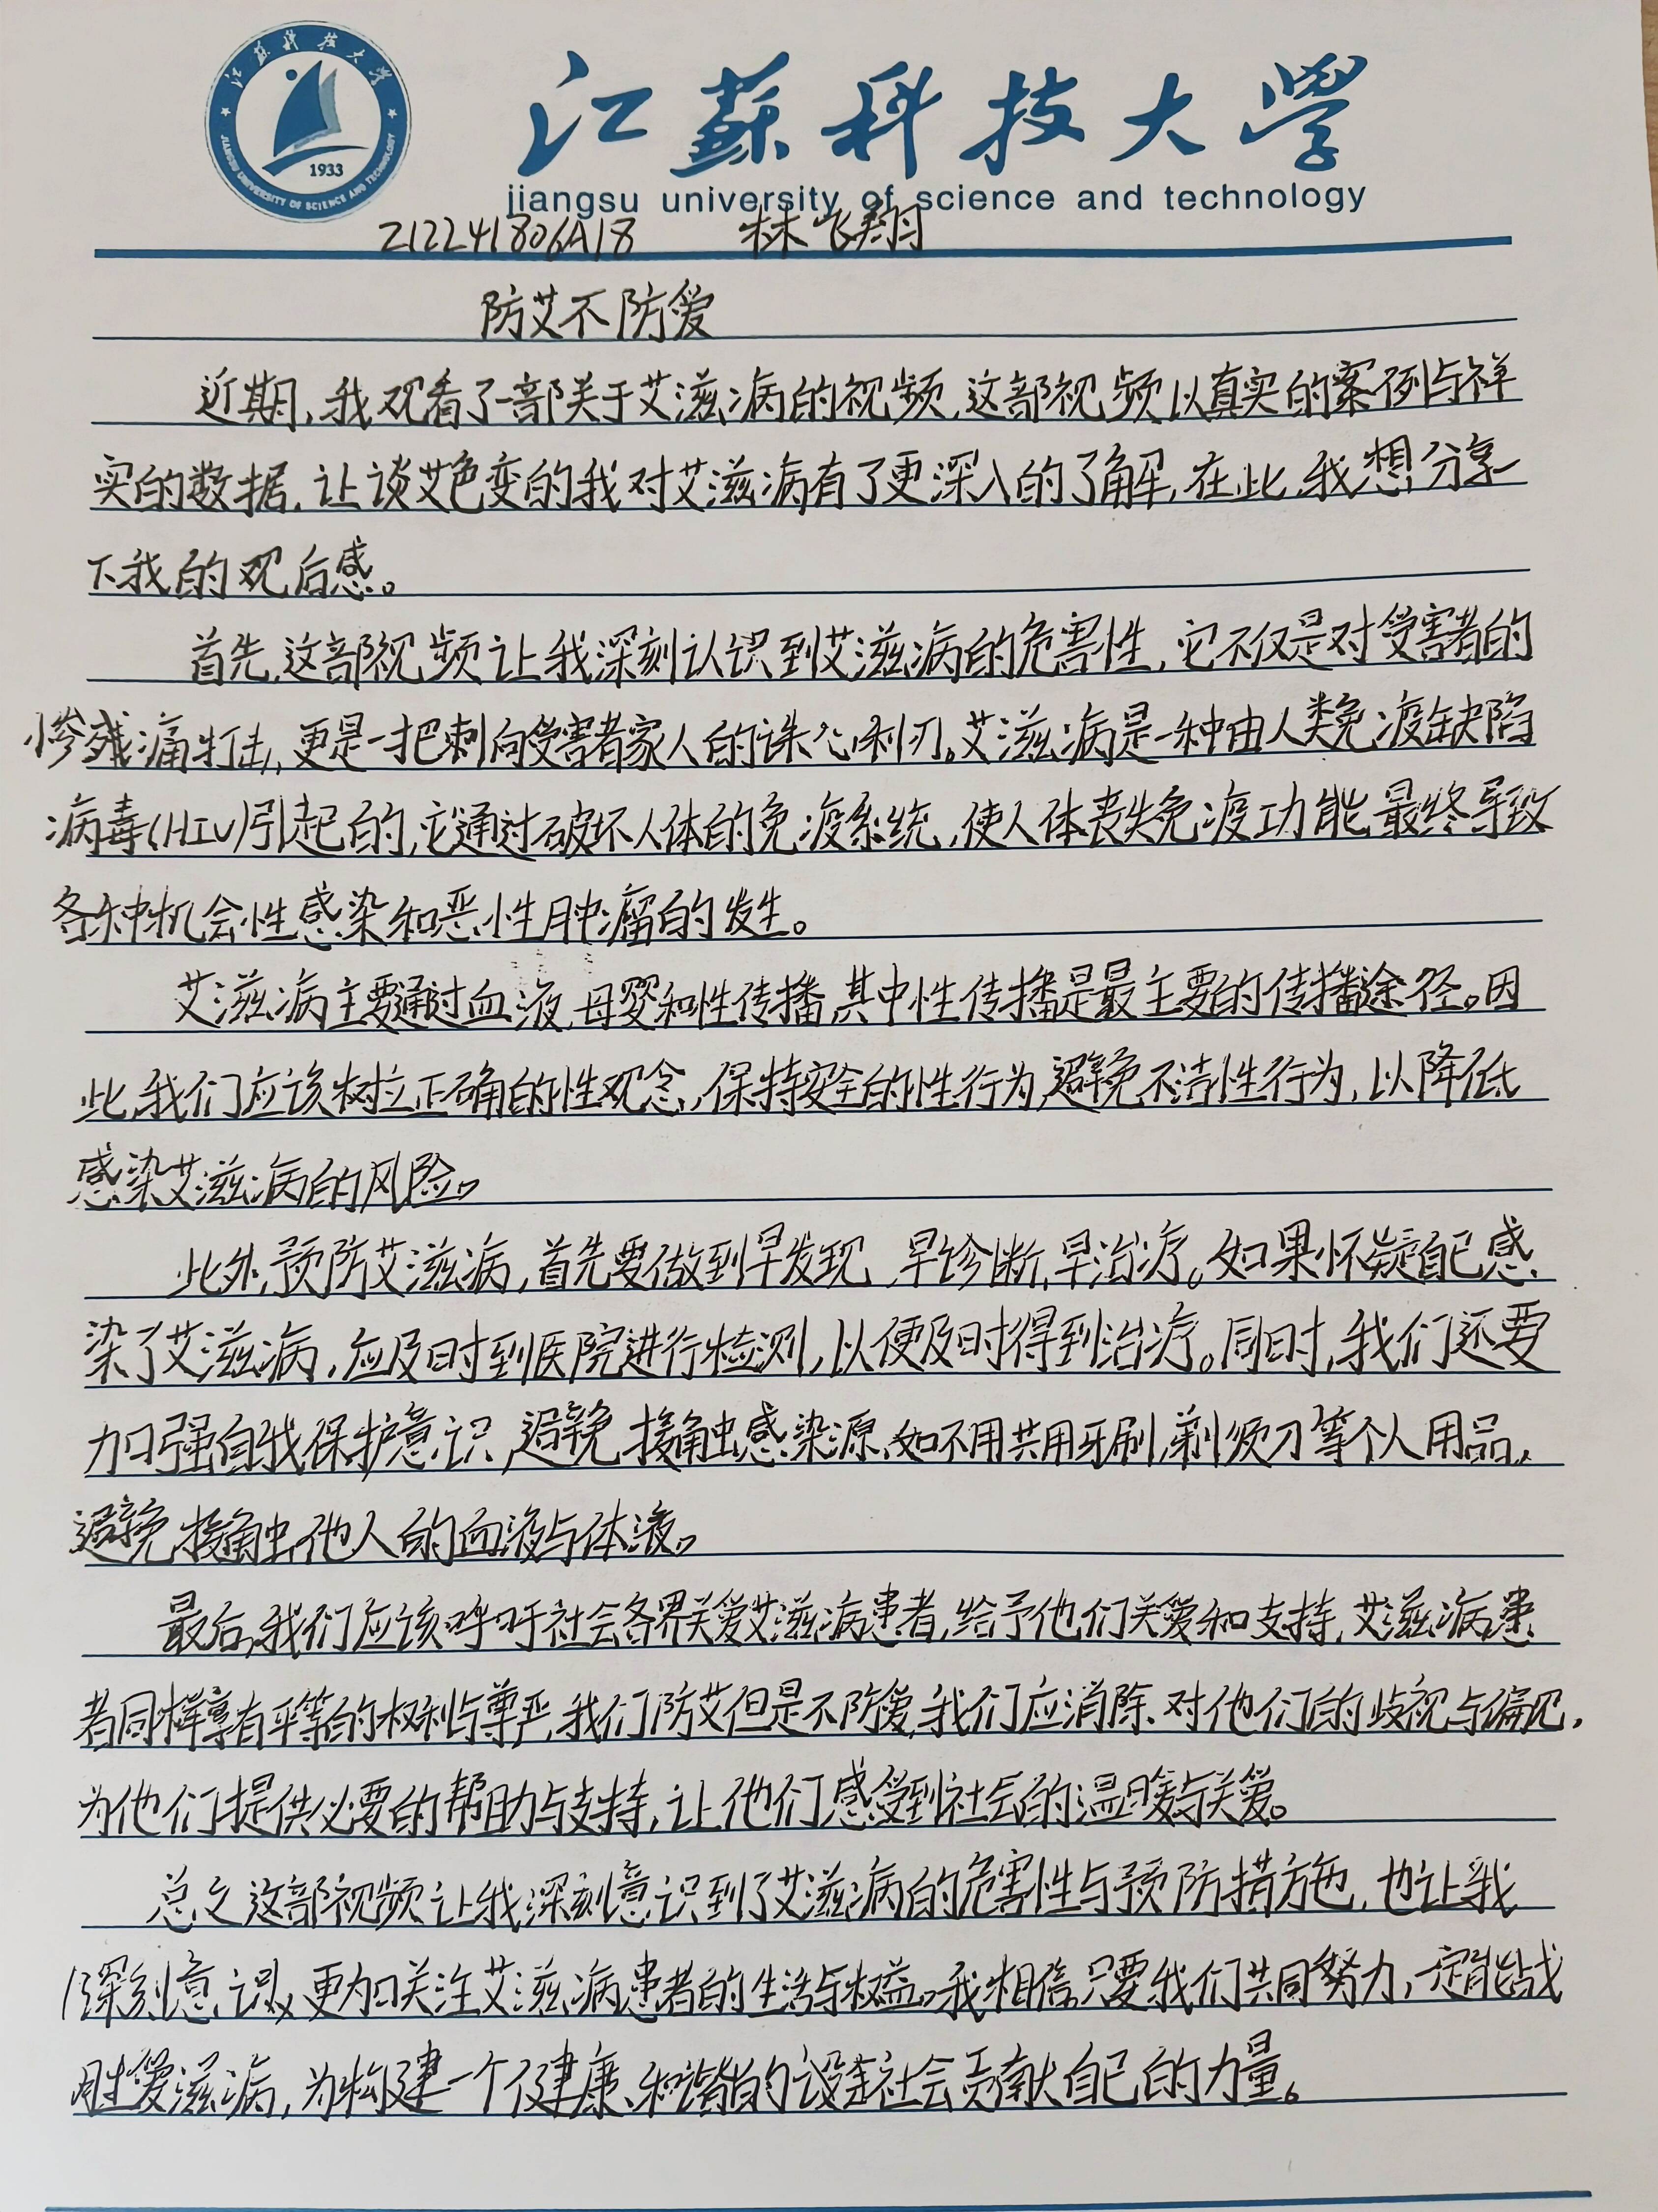 江蘇科技大学
江蘇科技大学
JIANGSU UNIVERSITY OF SCIENCE AND TECHNOLOGY
1933
jiangsu university of science and technology
212241806A18 林飞翔
防艾不防爱
近期,我观看了一部关于艾滋病的视频,这部视频以真实的案例与祥
实的数据,让谈艾色变的我对艾滋病有了更深入的了解,在此,我想分享一
下我的观后感。
首先,这部视频让我深刻认识到艾滋病的危害性,它不仅是对受害者的
惨残痛打击,更是一把刺向受害者家人的诛心利刃。艾滋病是一种由人类免疫缺陷
病毒(HIV)引起的,它通过破坏人体的免疫系统,使人体丧失免疫功能,最终导致
各种机会性感染和恶性肿瘤的发生。
艾滋病主要通过血液,母婴和性传播,其中性传播是最主要的传播途径。因
此,我们应该树立正确的性观念,保持安全的性行为,避免不洁性行为,以降低
感染艾滋病的风险。
此外,预防艾滋病,首先要做到早发现,早诊断,早治疗。如果怀疑自己感
染了艾滋病,应及时到医院进行检测,以便及时得到治疗。同时,我们还要
加强自我保护意识,避免接触感染源,如不用共用牙刷,剃须刀等个人用品,
避免接触他人的血液与体液。
最后,我们应该呼吁社会各界关爱艾滋病患者,给予他们关爱和支持,艾滋病患
者同样享有平等的权利与尊严,我们防艾但是不防爱,我们应消除对他们的歧视与偏见,
为他们提供必要的帮助与支持,让他们感受到社会的温暖与关爱。
总之,这部视频让我深刻意识到了艾滋病的危害性与预防措施,也让我
深刻意识,更加关注艾滋病患者的生活与权益。我相信,只要我们共同努力,一定能战
胜爱滋病,为构建一个健康、和谐的社会贡献自己的力量。